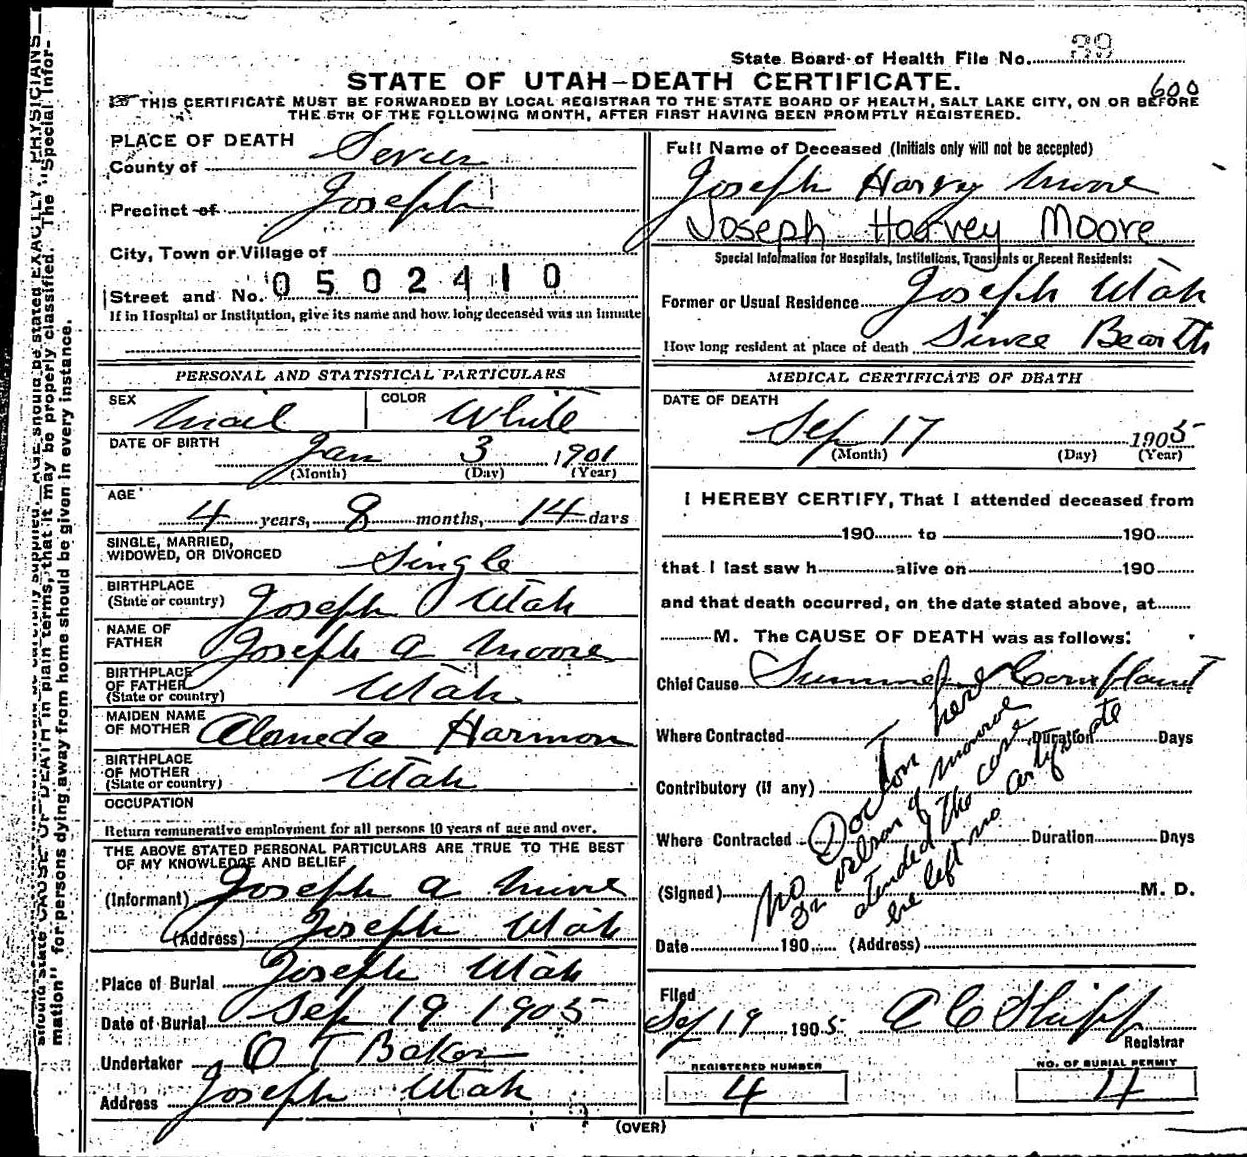 State Board of Health File No. 39
600
STATE OF UTAH—DEATH CERTIFICATE.
THIS CERTIFICATE MUST BE FORWARDED BY LOCAL REGISTRAR TO THE STATE BOARD OF HEALTH, SALT LAKE CITY, ON OR BEFORE
THE 5TH OF THE FOLLOWING MONTH, AFTER FIRST HAVING BEEN PROMPTLY REGISTERED.
PLACE OF DEATH
County of Sevier
Precinct of Joseph
City, Town or Village of
Street and No. 0502410
If in Hospital or Institution, give its name and how long deceased was an inmate
PERSONAL AND STATISTICAL PARTICULARS
SEX Mail COLOR White
DATE OF BIRTH Jan 3 1901
(Month) (Day) (Year)
AGE
4 years, 8 months, 14 days
SINGLE, MARRIED,
WIDOWED, OR DIVORCED Single
BIRTHPLACE
(State or country) Joseph Utah
NAME OF
FATHER Joseph A Moore
BIRTHPLACE
OF FATHER
(State or country) Utah
MAIDEN NAME
OF MOTHER Alameda Harmon
BIRTHPLACE
OF MOTHER
(State or country) Utah
OCCUPATION
Return remunerative employment for all persons 10 years of age and over.
THE ABOVE STATED PERSONAL PARTICULARS ARE TRUE TO THE BEST
OF MY KNOWLEDGE AND BELIEF
(Informant) Joseph A Moore
(Address) Joseph Utah
Place of Burial Joseph Utah
Date of Burial Sep 19 1905
Undertaker O T Baker
Address Joseph Utah
Full Name of Deceased (Initials only will not be accepted)
Joseph Harvy Moore
Joseph Harvey Moore
Special Information for Hospitals, Institutions, Transients or Recent Residents:
Former or Usual Residence Joseph Utah
How long resident at place of death Since Bearth
MEDICAL CERTIFICATE OF DEATH
DATE OF DEATH
Sep 17 1905
(Month) (Day) (Year)
I HEREBY CERTIFY, That I attended deceased from
190 to 190
that I last saw h alive on 190
and that death occurred, on the date stated above, at
M. The CAUSE OF DEATH was as follows:
Chief Cause Summer Complaint
Where Contracted Duration Days
Contributory (if any)
Where Contracted Duration Days
(Signed) M. D.
Date 190 (Address)
No Doctor here
Dr Nelson of Monroe
atended the case
he left no certificate
Filed
Sep 19 1905 A C Shipp
Registrar
REGISTERED NUMBER
4
NO. OF BURIAL PERMIT
4
(OVER)
AGE should be stated EXACTLY. PHYSICIANS
should state CAUSE OF DEATH in plain terms, that it may be properly classified. The "Special Infor-
mation" for persons dying away from home should be given in every instance.